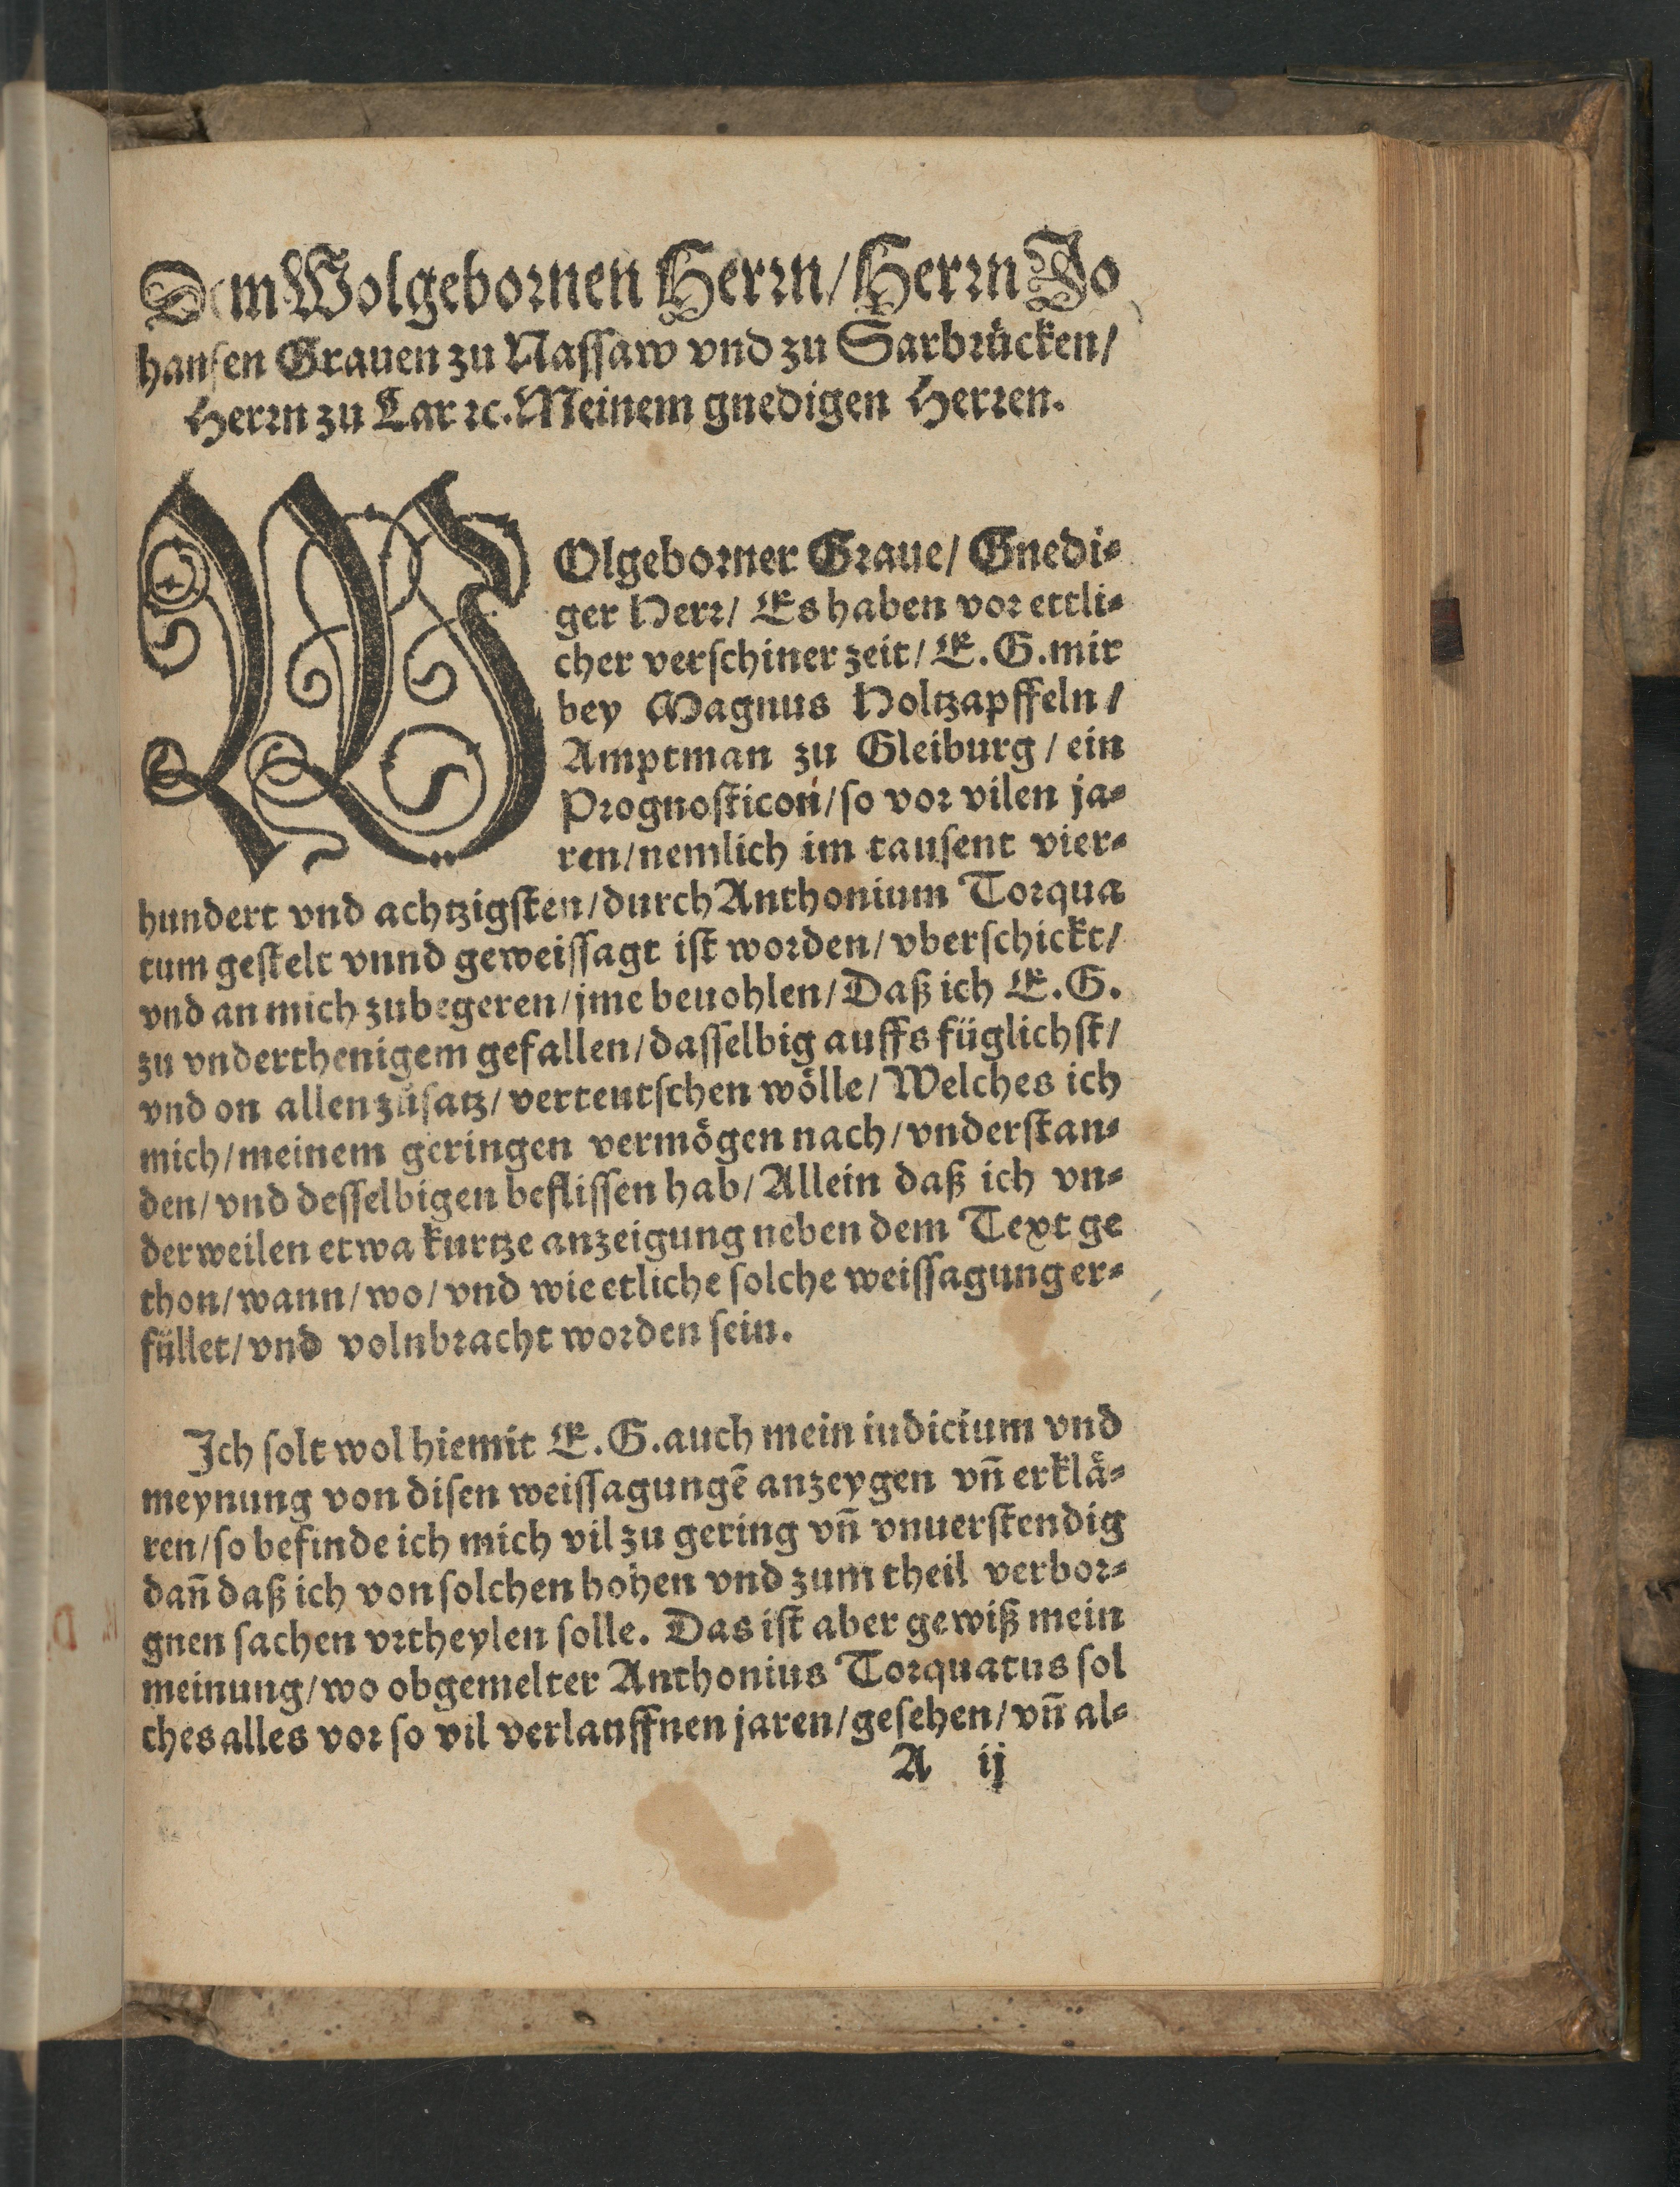 Dem Wolgebornen Herrn/ Herrn Jo
hansen Grauen zu Nassaw vnd zu Sarbrücken/
Herrn zu Lar ꝛc. Meinem gnedigen Herren.
WOlgeborner Graue/ Gnedi⸗
ger Herr/ Es haben vor ettli⸗
cher verschiner zeit/ E. G. mir
bey Magnus Holtzapffeln/
Amptman zu Gleiburg/ ein
Prognosticon/ so vor vilen ja⸗
ren/ nemlich im tausent vier⸗
hundert vnd achtzigsten/ durch Anthonium Torqua
tum gestelt vnnd geweissagt ist worden/ vberschickt/
vnd an mich zubegeren/ jme beuohlen/ Daß ich E. G.
zu vnderthenigem gefallen/ dasselbig auffs füglichst/
vnd on allen zůsatz/ verteutschen wölle/ Welches ich
mich/ meinem geringen vermögen nach/ vnderstan⸗
den/ vnd desselbigen beflissen hab/ Allein daß ich vn⸗
derweilen etwa kurtze anzeigung neben dem Text ge
thon/ wann/ wo/ vnd wie etliche solche weissagung er⸗
füllet/ vnd volnbracht worden sein.
Ich solt wol hiemit E. G. auch mein iudicium vnd
meynung von disen weissagungẽ anzeygen vñ erklä⸗
ren/ so befinde ich mich vil zu gering vñ vnuerstendig
dañ daß ich von solchen hohen vnd zum theil verbor⸗
gnen sachen vrtheylen solle. Das ist aber gewiß mein
meinung/ wo obgemelter Anthonius Torquatus sol
ches alles vor so vil verlauffnen jaren/ gesehen/ vñ al⸗
A ij